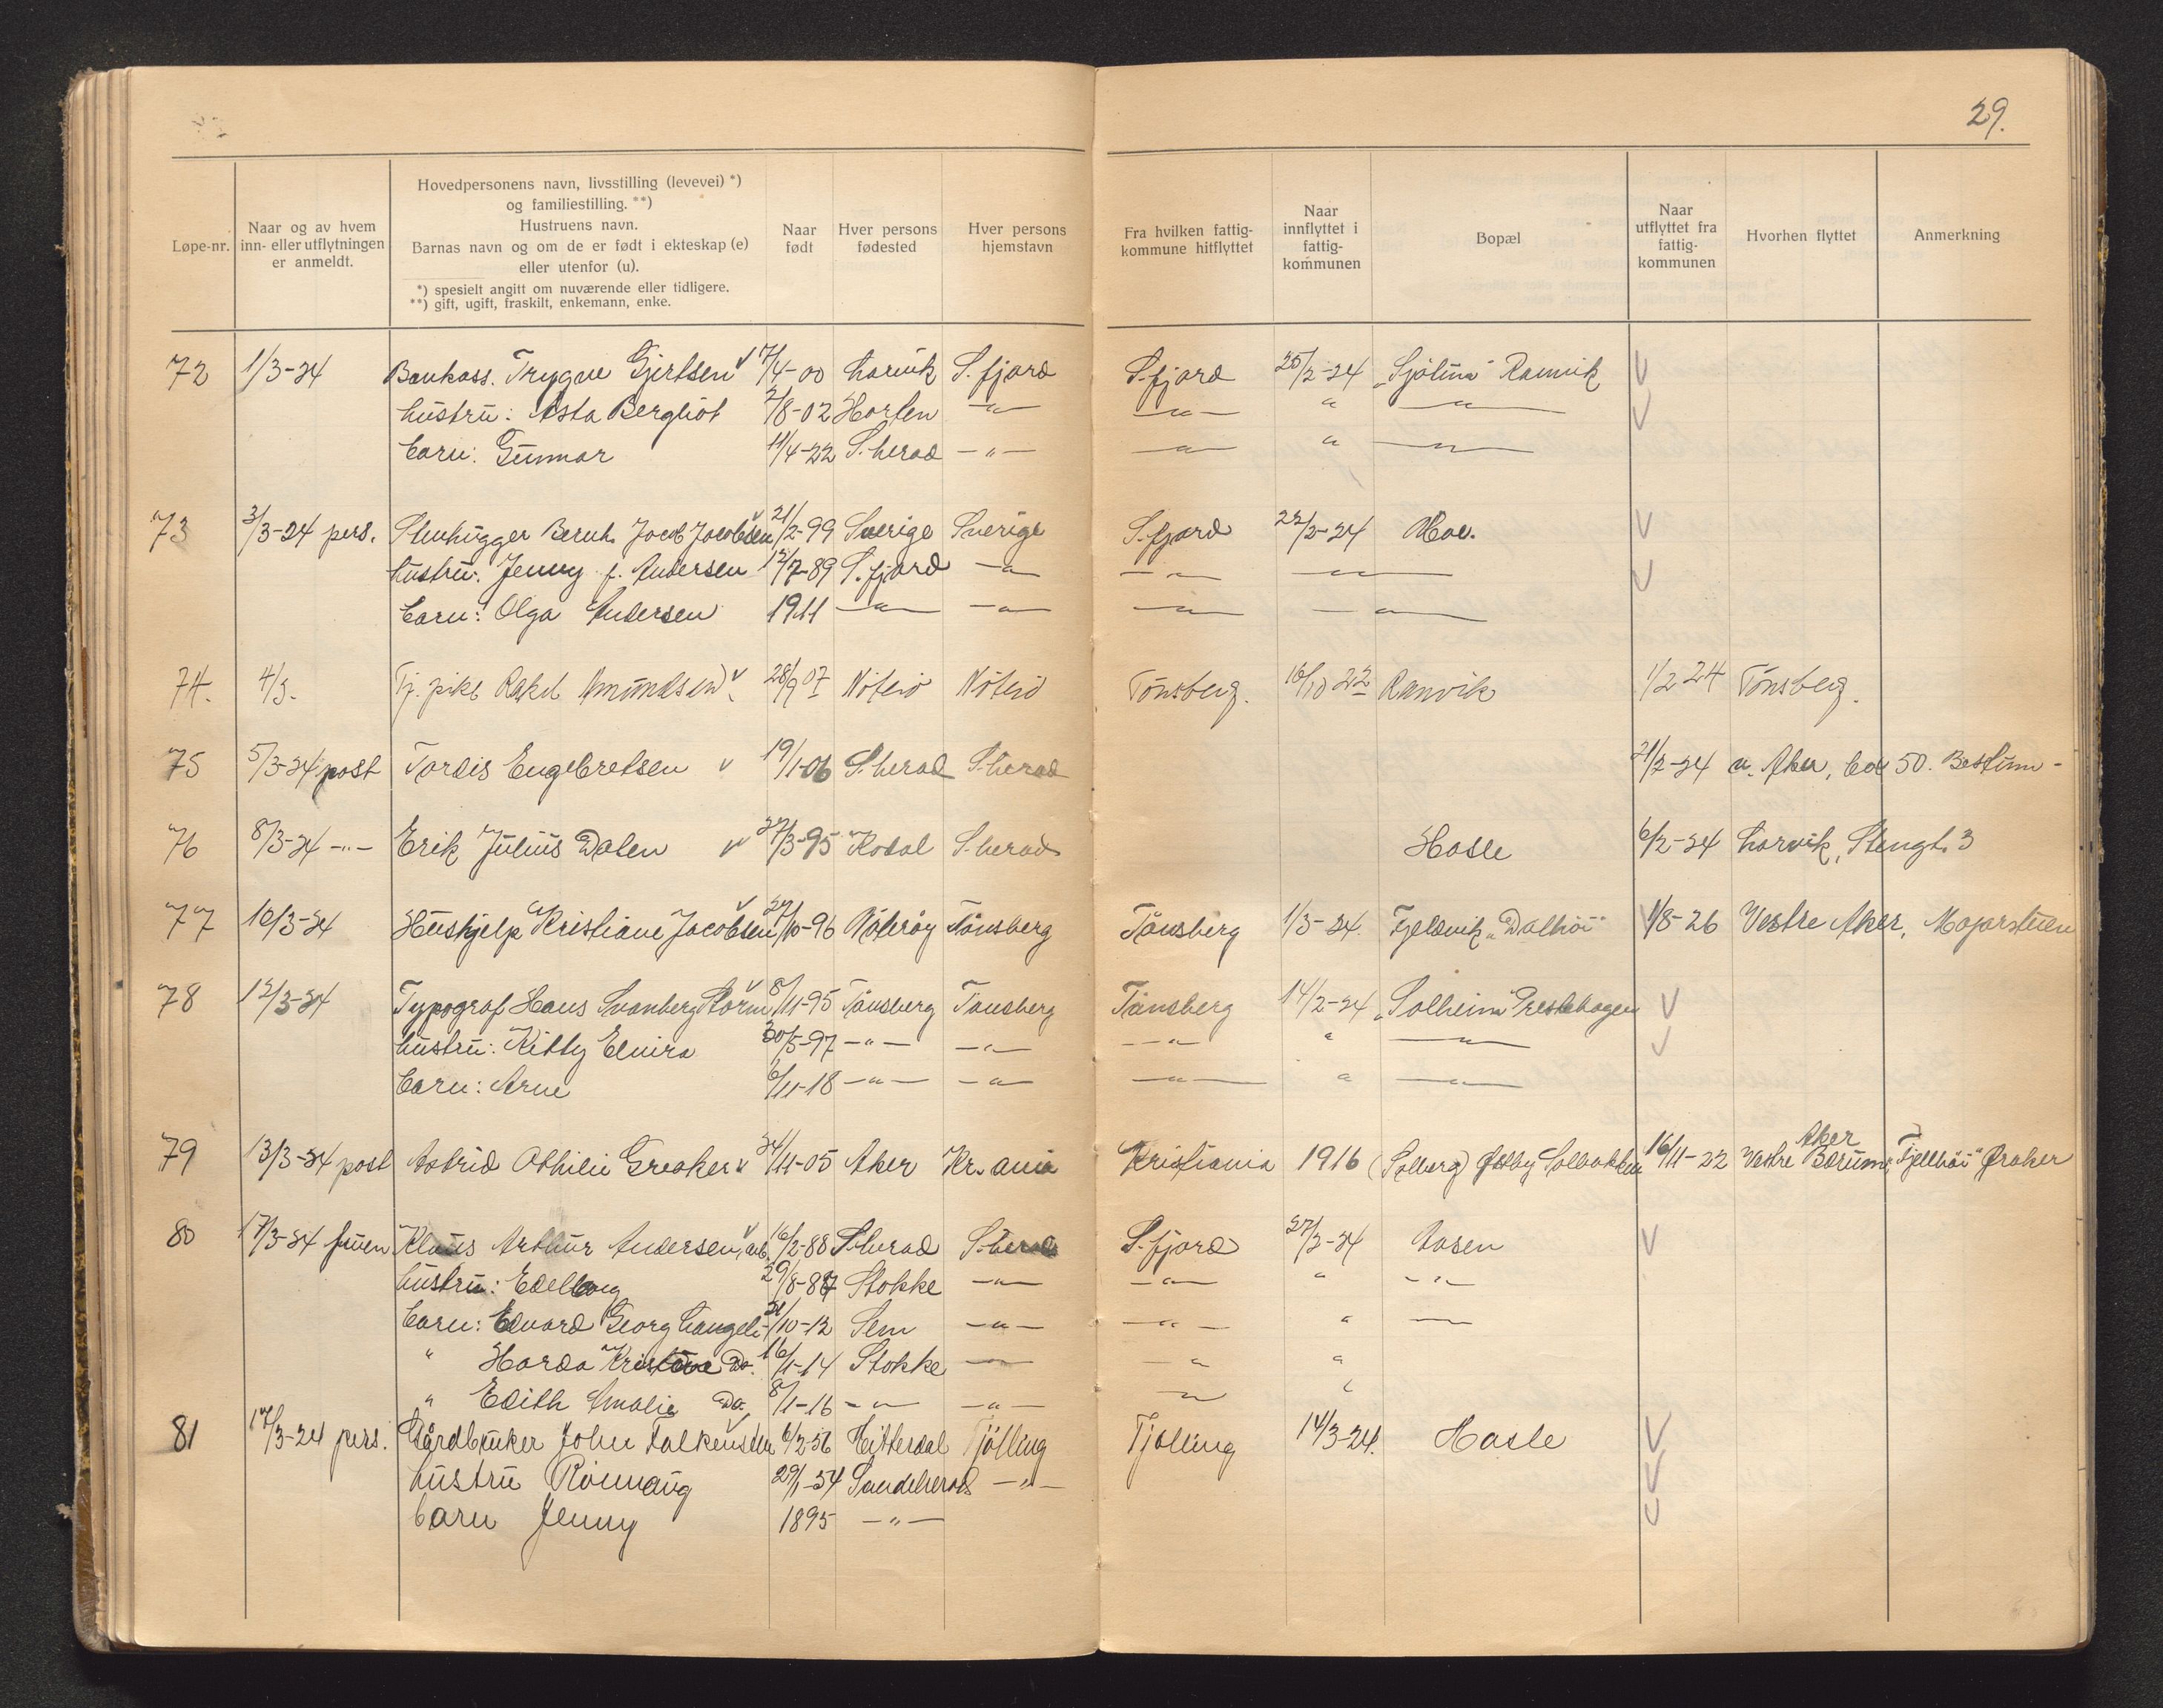 29.
Løpe-nr.
Naar og av hvem
inn- eller utflytningen
er anmeldt.
Hovedpersonens navn, livsstilling (levevei) *)
og familiestilling. **)
Hustruens navn.
Barnas navn og om de er født i ekteskap (e)
eller utenfor (u).
*) spesielt angitt om nuværende eller tidligere.
**) gift, ugift, fraskilt, enkemann, enke.
Naar
født
Hver persons
fødested
Hver persons
hjemstavn
Fra hvilken fattig-
kommune hitflyttet
Naar
innflyttet i
fattig-
kommunen
Bopæl
Naar
utflyttet fra
fattig-
kommunen
Hvorhen flyttet
Anmerkning
72 1/3-24 Bankass. Trygve Gjertsen √ 7/4-00 Larvik S.fjord S.fjord 25/2-24 „Sjølund" Ranvik √
hustru: Asta Bergliot 7/8-02 Horten —"— —"— " —"— √
barn: Gunnar 11/4-22 S.herad —"— —"— " —"—
73 3/3-24 pers. Stenhugger Bernh. Jacob Jacobsen √ 21/2-99 Sverige Sverige S.fjord 22/2-24 Moe. √
hustru: Jenny f. Andersen 12/7-89 S.fjord —"— —"— —"— √
barn: Olga Andersen 1911 —"— —"— —"— —"—
74. 4/3. Tj. pike Rakel Amundsen √ 28/9 07 Nöterö Nöterö Tönsberg. 16/10 22 Ranvik 1/2 24 Tönsberg.
75 5/3-24 post Tordis Engebretsen √ 19/1-06 S.herad S.herad 21/2-24 v. Aker, box 50. Bestum-
76 8/3-24 —"— Erik Julius Dalen √ 27/3-95 Kodal S.herad Hasle 6/2-24 Larvik, Stengt. 3
77 10/3-24 Hushjelp Kristiane Jacobsen √ 27/10-96 Nöterøy Tønsberg Tønsberg 1/3-24. Fjeldvik „Dalhöi" 1/8-26 Vestre Aker, Majorstuen
78 12/3-24 Typograf Hans Svanberg Storm √ 8/11-95 Tønsberg Tønsberg Tønsberg 14/2-24 „Solheim" Prestehagen √
hustru: Kitty Elvira 30/5-97 —"— —"— —"— " —"— √
barn: Arne 6/11-18 —"— —"— —"— " —"—
79 13/3-24 post Astrid Othilie Greaker √ 24/11-05 Aker Kr.ania Kristiania 1916 (Solberg) Østby Solbakken 16/11-22 Vestre Aker Bærum, „Fjellhöi" Øraker
80 17/3-24 fruen Klaus Arthur Andersen, √ arb. 16/2-88 S.herad S.herad S.fjord 27/2-24 Aasen √
hustru: Edelborg 29/8-87 Stokke —"— —"— " —"—
barn: Edvard Georg Langeli 21/10-12 Sem —"— —"— " —"—
" Harda Kristine Do. 16/1-14 Stokke —"— —"— "
" Edith Amalie Do. 8/1-16 —"— —"— —"— "
81 17/3-24 pers. Gårdbruker John Falkensten √ 6/2-56 Hitterdal Tjølling Tjølling 14/3-24. Hasle √
hustru Rönnaug 29/1-54 Sandeherad —"— √
barn Jenny 1895 —"— √